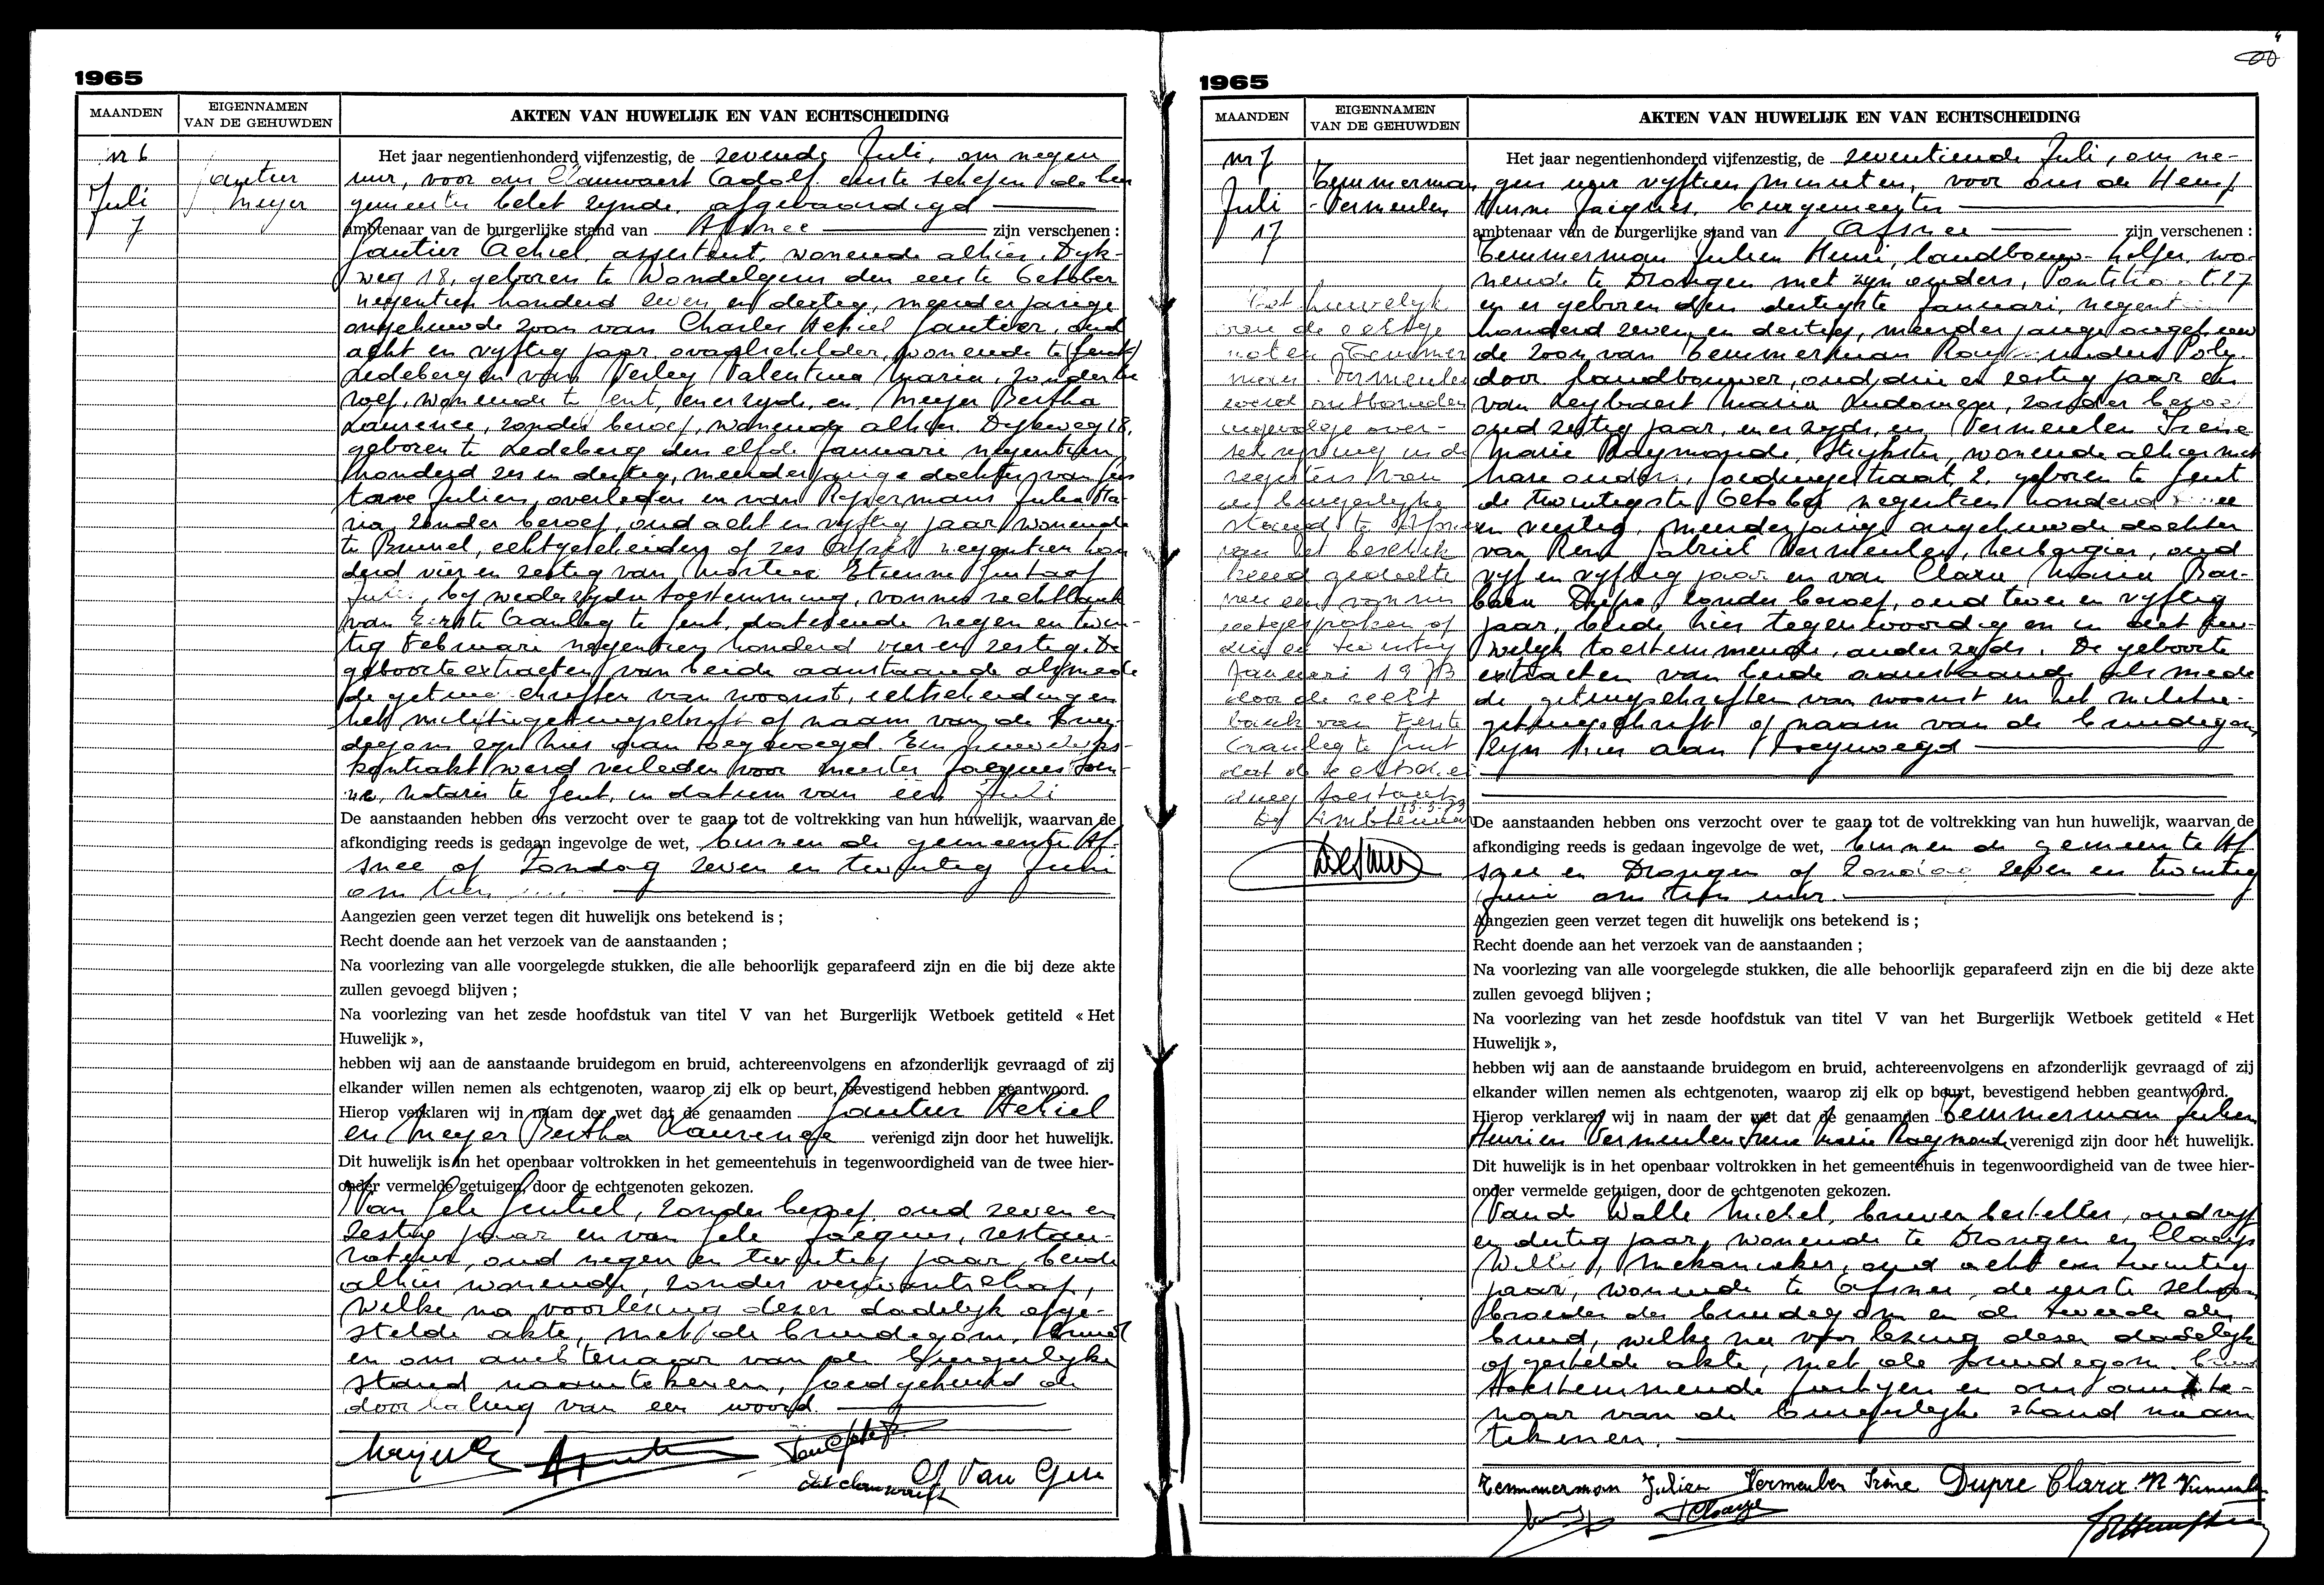 1965
MAANDEN
EIGENNAMEN
VAN DE GEHUWDEN
AKTEN VAN HUWELIJK EN VAN ECHTSCHEIDING
nr 6
Juli
7
Gautier
Meyer
Het jaar negentienhonderd vijfenzestig, de zevende Juli, om negen
uur, voor ons Clauwaert Adolf eerste schepen de bur
gemeester belet zynde, afgevaardigd
ambtenaar van de burgerlijke stand van Afsnee zijn verschenen :
Gautier Achiel, assistent, wonende alhier, Dyk-
weg 18, geboren te Wondelgem den eerste October
negentien honderd zeven en dertig, meerderjarige
ongehuwde zoon van Charles Achiel Gautier, oud
acht en vyftig jaar, wonende te (Gent)
Ledeberg en van Verley Valentina Maria, zonder be
roep, wonende te Gent, enerzyds, en, Meyer Bertha
Laurence, zonder beroep, wonende alhier Dykweg 18,
geboren te Ledeberg den elfde Januari negentien
honderd zes en dertig, meerderjarige dochter van Gus
tave Julien, overleden en van Julia Ma-
ria, zonder beroep, oud acht en vyftig jaar, wonende
te Brussel, echtgescheiden op zes April negentien hon
derd vier en zestig van Mortier Etienne Gustaaf
by wederzydse toestemming, vonnis rechtbank
van Eerste Aanleg te Gent, daterende negen en twin-
tig Februari negentien honderd vier en zestig. De
geboorteextracten van beide aanstaande alsmede
de getuigschriften van woonst, echtscheiding en
het militiegetuigschrift op naam van de brui-
degom zyn hier aan toegevoegd. Een huwelyks-
kontrakt werd verleden voor meester Jacques
notaris te Gent, in datum van een Juli
De aanstaanden hebben ons verzocht over te gaan tot de voltrekking van hun huwelijk, waarvan de
afkondiging reeds is gedaan ingevolge de wet, binnen de gemeente Af-
snee op Zondag zeven en twintig Juni
om tien
Aangezien geen verzet tegen dit huwelijk ons betekend is ;
Recht doende aan het verzoek van de aanstaanden ;
Na voorlezing van alle voorgelegde stukken, die alle behoorlijk geparafeerd zijn en die bij deze akte
zullen gevoegd blijven ;
Na voorlezing van het zesde hoofdstuk van titel V van het Burgerlijk Wetboek getiteld « Het
Huwelijk »,
hebben wij aan de aanstaande bruidegom en bruid, achtereenvolgens en afzonderlijk gevraagd of zij
elkander willen nemen als echtgenoten, waarop zij elk op beurt, bevestigend hebben geantwoord.
Hierop verklaren wij in naam der wet dat de genaamden Gautier Achiel
en Meyer Bertha Laurence verenigd zijn door het huwelijk.
Dit huwelijk is in het openbaar voltrokken in het gemeentehuis in tegenwoordigheid van de twee hier-
onder vermelde getuigen, door de echtgenoten gekozen.
Van Gele Gentiel, zonder beroep, oud zeven en
zestig jaar en van Gele Jacques, restau-
rateur, oud negen en twintig jaar, beide
alhier wonende, zonder verwantschap,
welke na voorlezing dezer dadelyk opge-
stelde akte, met de bruidegom, bruid
en ons ambtenaar van de burgerlyke
stand naamtekenen, goedgekeurd de
doorhaling van een woord.
Van Gele
1965
MAANDEN
EIGENNAMEN
VAN DE GEHUWDEN
AKTEN VAN HUWELIJK EN VAN ECHTSCHEIDING
nr 7
Juli
17
Temmerman
- Vermeulen
Het huwelyk
van de echtge
noten Temmer
man - Vermeulen
werd ontbonden
ingevolge over-
schryving in de
registers van
de burgerlyke
stand te Afsnee
van het beschik
kend gedeelte
van een vonnis
uitgesproken op
drie en twintig
Januari 1973
door de recht
bank van Eerste
Aanleg te Gent
dat de echtschei
ding toestaat
De ambtenaar
Het jaar negentienhonderd vijfenzestig, de zeventiende Juli, om ne-
gen uur vyftien minuten, voor ons de Hemp
tinne Jacques, burgemeester
ambtenaar van de burgerlijke stand van Afsnee zijn verschenen :
Temmerman Julien Henri, landbouw-helper, wo-
nende te Drongen met zyn ouders, 27
en er geboren den dertigste Januari, negentien
honderd zeven en dertig, meerderjarige ongehuw
de zoon van Temmerman Poly-
door landbouwer, oud drie en zestig jaar en
van Leybaert Maria Ludovica, zonder beroep
oud zestig jaar, enerzyds, en, Vermeulen Irène
Marie Raymonde, stikster, wonende alhier met
hare ouders, Goedingestraat, 2, geboren te Gent
de twintigste October negentien honderd
en veertig, meerderjarige ongehuwde dochter
van René Gabriel Vermeulen, herbergier, oud
vyf en vyftig jaar en van Clara Maria Bar-
bara Dupre, zonder beroep, oud twee en vyftig
jaar, beide hier tegenwoordig en in dit hu-
welyk toestemmende, anderzyds. De geboorte
extracten van beide aanstaande alsmede
de getuigschriften van woonst en het militie-
getuigschrift op naam van de bruidegom
zyn hier aan toegevoegd
De aanstaanden hebben ons verzocht over te gaan tot de voltrekking van hun huwelijk, waarvan de
afkondiging reeds is gedaan ingevolge de wet, binnen de gemeente Af
snee en Drongen op Zondag zeven en twintig
Juni om tien uur.
Aangezien geen verzet tegen dit huwelijk ons betekend is ;
Recht doende aan het verzoek van de aanstaanden ;
Na voorlezing van alle voorgelegde stukken, die alle behoorlijk geparafeerd zijn en die bij deze akte
zullen gevoegd blijven ;
Na voorlezing van het zesde hoofdstuk van titel V van het Burgerlijk Wetboek getiteld « Het
Huwelijk »,
hebben wij aan de aanstaande bruidegom en bruid, achtereenvolgens en afzonderlijk gevraagd of zij
elkander willen nemen als echtgenoten, waarop zij elk op beurt, bevestigend hebben geantwoord.
Hierop verklaren wij in naam der wet dat de genaamden Temmerman Julien
Henri en Vermeulen Irene Marie Raymonde verenigd zijn door het huwelijk.
Dit huwelijk is in het openbaar voltrokken in het gemeentehuis in tegenwoordigheid van de twee hier-
onder vermelde getuigen, door de echtgenoten gekozen.
Van de Walle Michel, brievenbesteller, oud vyf
en dertig jaar, wonende te Drongen en Claeys
Willy, mekanieker, oud acht en twintig
jaar, wonende te Afsnee, de eerste schoon
broeder der bruidegom en de tweede der
bruid, welke na voorlezing dezer dadelyk
opgestelde akte, met de bruidegom, bruid
toestemmende partyen en ons ambte-
naar van de burgerlyke stand naam
tekenen.
Temmerman Julien Vermeulen Irène Dupre Clara R Vermeulen